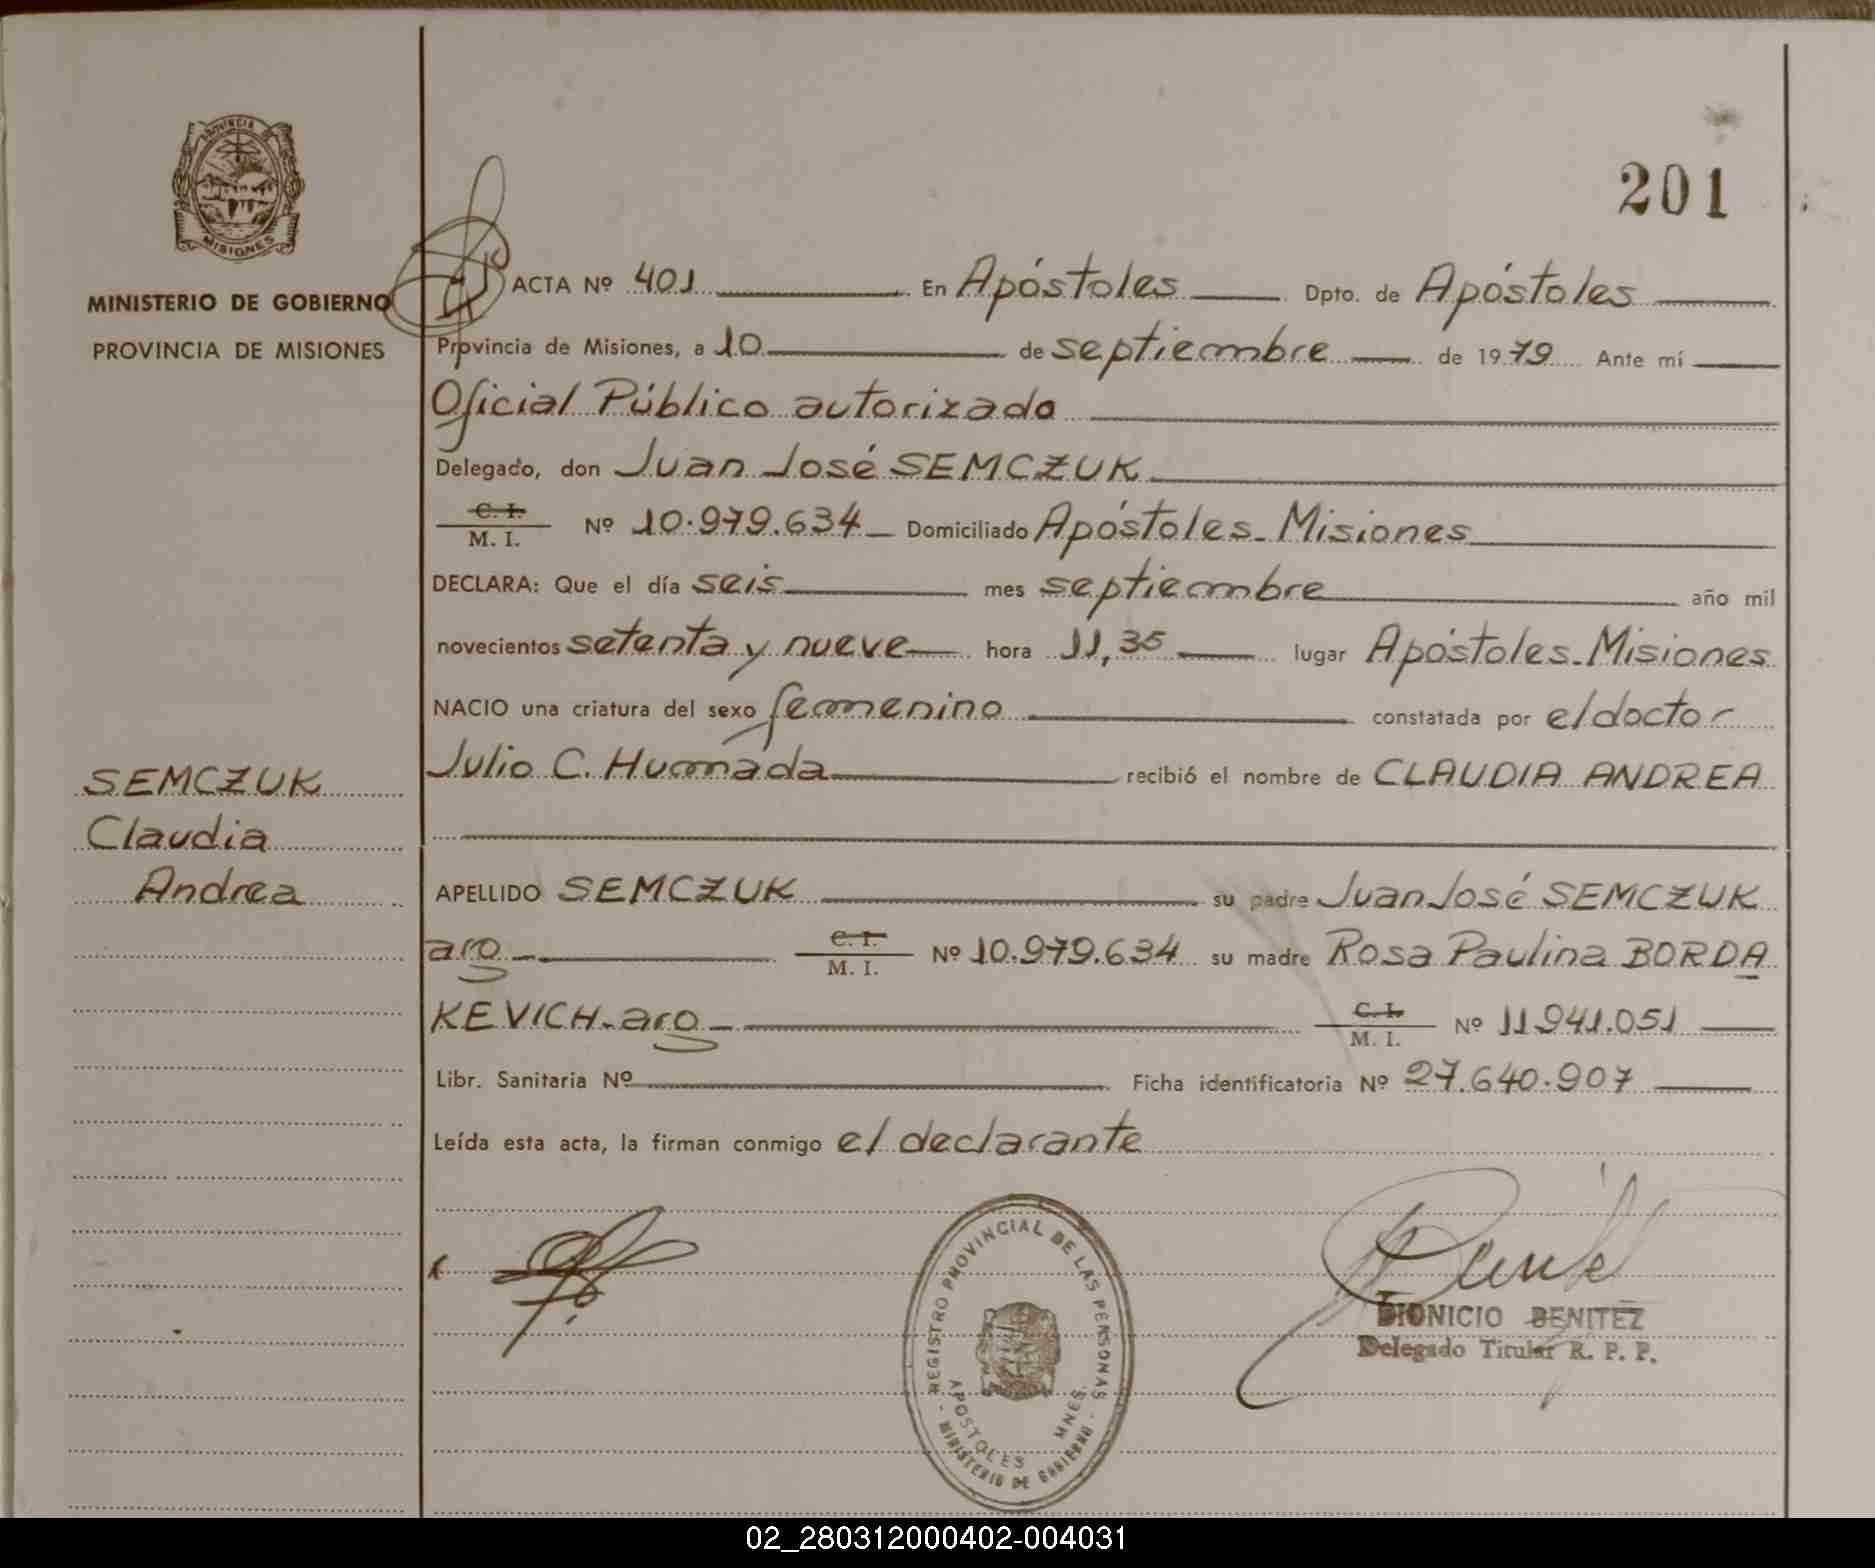 PROVINCIA DE
MISIONES
MINISTERIO DE GOBIERNO
PROVINCIA DE MISIONES
201
ACTA Nº 401 En Apóstoles Dpto. de Apóstoles
Provincia de Misiones, a 10 de septiembre de 1979 Ante mí
Oficial Público autorizado
Delegado, don Juan José SEMCZUK
C. I.
M. I. Nº 10.979.634 Domiciliado Apóstoles - Misiones
DECLARA: Que el día seis mes septiembre año mil
novecientos setenta y nueve hora 11,35 lugar Apóstoles - Misiones
NACIO una criatura del sexo femenino constatada por el doctor
Julio C. Humada recibió el nombre de CLAUDIA ANDREA
SEMCZUK
Claudia
Andrea
APELLIDO SEMCZUK su padre Juan José SEMCZUK
arg C. I.
M. I. Nº 10.979.634 su madre Rosa Paulina BORDA
KEVICH - arg C. I.
M. I. Nº 11941.051
Libr. Sanitaria Nº Ficha identificatoria Nº 27.640.907
Leída esta acta, la firman conmigo el declarante
REGISTRO PROVINCIAL DE LAS PERSONAS
APOSTOLES MNES.
- MINISTERIO DE GOBIERNO -
DIONICIO BENITEZ
Delegado Titular R. P. P.
02_280312000402-004031